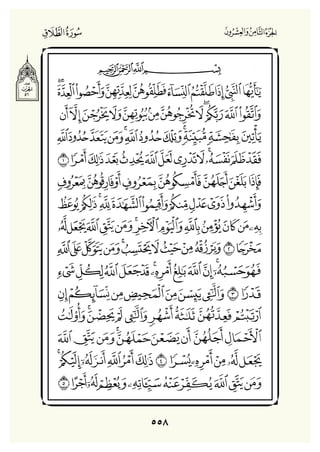 الجُزْءُ الثَّامِنُ وَالعِشْرُونَ
سُورَةُ الطَّلَاقِ
بِسْمِ ٱللَّهِ ٱلرَّحْمَٰنِ ٱلرَّحِيمِ
يَٰٓأَيُّهَا ٱلنَّبِيُّ إِذَا طَلَّقْتُمُ ٱلنِّسَآءَ فَطَلِّقُوهُنَّ لِعِدَّتِهِنَّ وَأَحْصُواْ ٱلْعِدَّةَۖ
وَٱتَّقُواْ ٱللَّهَ رَبَّكُمْۖ لَا تُخْرِجُوهُنَّ مِنۢ بُيُوتِهِنَّ وَلَا يَخْرُجْنَ إِلَّآ أَن
يَأْتِينَ بِفَٰحِشَةٍ مُّبَيِّنَةٍۚ وَتِلْكَ حُدُودُ ٱللَّهِۚ وَمَن يَتَعَدَّ حُدُودَ ٱللَّهِ
فَقَدْ ظَلَمَ نَفْسَهُۥۚ لَا تَدْرِي لَعَلَّ ٱللَّهَ يُحْدِثُ بَعْدَ ذَٰلِكَ أَمْرًا ١
فَإِذَا بَلَغْنَ أَجَلَهُنَّ فَأَمْسِكُوهُنَّ بِمَعْرُوفٍ أَوْ فَارِقُوهُنَّ بِمَعْرُوفٍ
وَأَشْهِدُواْ ذَوَيْ عَدْلٍ مِّنكُمْ وَأَقِيمُواْ ٱلشَّهَٰدَةَ لِلَّهِۚ ذَٰلِكُمْ يُوعَظُ
بِهِۦ مَن كَانَ يُؤْمِنُ بِٱللَّهِ وَٱلْيَوْمِ ٱلْأٓخِرِۚ وَمَن يَتَّقِ ٱللَّهَ يَجْعَل لَّهُۥ
مَخْرَجًا ٢ وَيَرْزُقْهُ مِنْ حَيْثُ لَا يَحْتَسِبُۚ وَمَن يَتَوَكَّلْ عَلَى ٱللَّهِ
فَهُوَ حَسْبُهُۥٓۚ إِنَّ ٱللَّهَ بَٰلِغُ أَمْرِهِۦۚ قَدْ جَعَلَ ٱللَّهُ لِكُلِّ شَيْءٍ
قَدْرًا ٣ وَٱلَّٰٓـِٔي يَئِسْنَ مِنَ ٱلْمَحِيضِ مِن نِّسَآئِكُمْ إِنِ
ٱرْتَبْتُمْ فَعِدَّتُهُنَّ ثَلَٰثَةُ أَشْهُرٍ وَٱلَّٰٓـِٔي لَمْ يَحِضْنَۚ وَأُوْلَٰتُ
ٱلْأَحْمَالِ أَجَلُهُنَّ أَن يَضَعْنَ حَمْلَهُنَّۚ وَمَن يَتَّقِ ٱللَّهَ
يَجْعَل لَّهُۥ مِنْ أَمْرِهِۦ يُسْرًا ٤ ذَٰلِكَ أَمْرُ ٱللَّهِ أَنزَلَهُۥٓ إِلَيْكُمْۚ
وَمَن يَتَّقِ ٱللَّهَ يُكَفِّرْ عَنْهُ سَيِّـَٔاتِهِۦ وَيُعْظِمْ لَهُۥٓ أَجْرًا ٥
٥٥٨